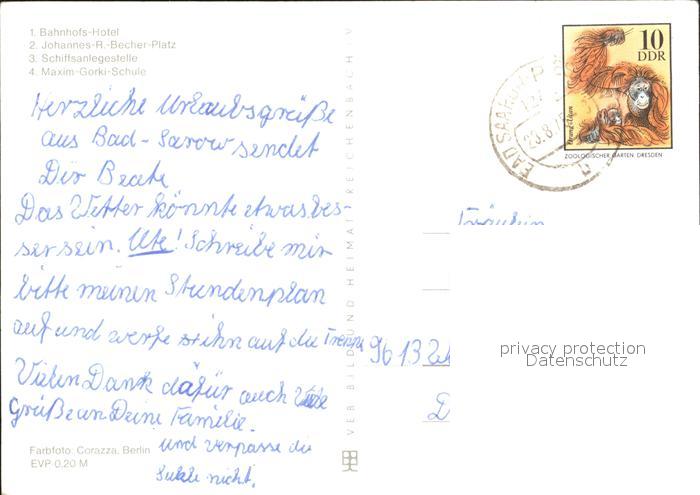 1. Bahnhofs-Hotel
2. Johannes-R.-Becher-Platz
3. Schiffsanlegestelle
4. Maxim-Gorki-Schule
Herzliche Urlaubsgrüße
aus Bad-Sarow sendet
Dir Beate
Das Wetter könnte etwas bes-
ser sein. Ute! Schreibe mir
bitte meinen Stundenplan
auf und werfe ihn auf die
Vielen Dank dafür auch Viele
Grüße an Deine Familie.
und verpasse die
nicht.
Farbfoto: Corazza, Berlin
EVP 0,20 M
VEB BILD UND HEIMAT REICHENBACH V
10
DDR
ZOOLOGISCHER GARTEN DRESDEN
BAD SAAROW-P
23.8.
Fräulein
9613
privacy protection
Datenschutz